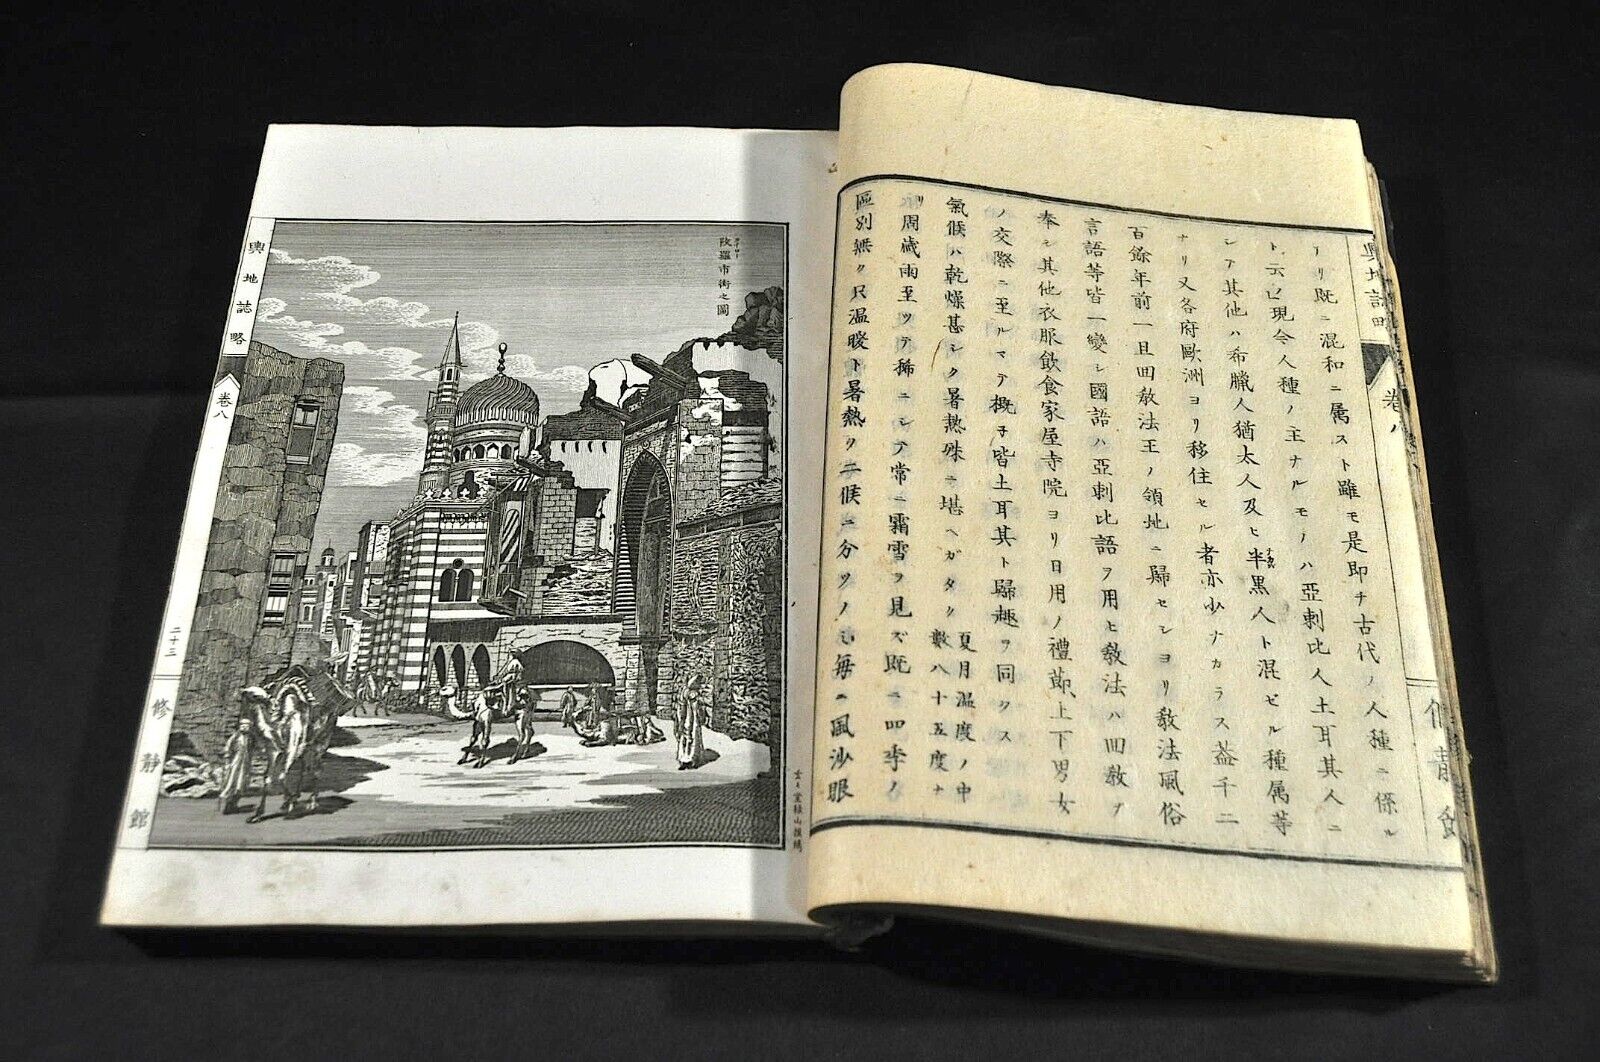 輿地誌略
卷八
アリ既ニ混和ニ属スト雖モ是即チ古代ノ人種ニ係ル
ト云ヒ現今人種ノ主ナルモノハ亞剌比人土耳其人ニ
シテ其他ハ希臘人猶太人及ヒ半黒人ト混ゼル種属等
ナリ又各府歐洲ヨリ移住セル者亦少ナカラス蓋千二
百餘年前一旦回敎法王ノ領地ニ歸セシヨリ敎法風俗
言語等皆一變シ國語ハ亞剌比語ヲ用ヒ敎法ハ回敎ヲ
奉シ其他衣服飲食家屋寺院ヨリ日用ノ禮節上下男女
ノ交際ニ至ルマテ概子皆土耳其ト歸趣ヲ同クス
氣候ハ乾燥甚シク暑熱殊ニ堪ヘガタク夏月温度ノ中
數八十五度ナ
リ周歳雨至ツテ稀ニシテ常ニ霜雪ヲ見ズ既ニ四季ノ
區別無ク只温暖ト暑熱ヲ二候ニ分ツノミ毎ニ風沙眼
改羅市街之圖
輿地誌略
卷八
二十三
修靜館